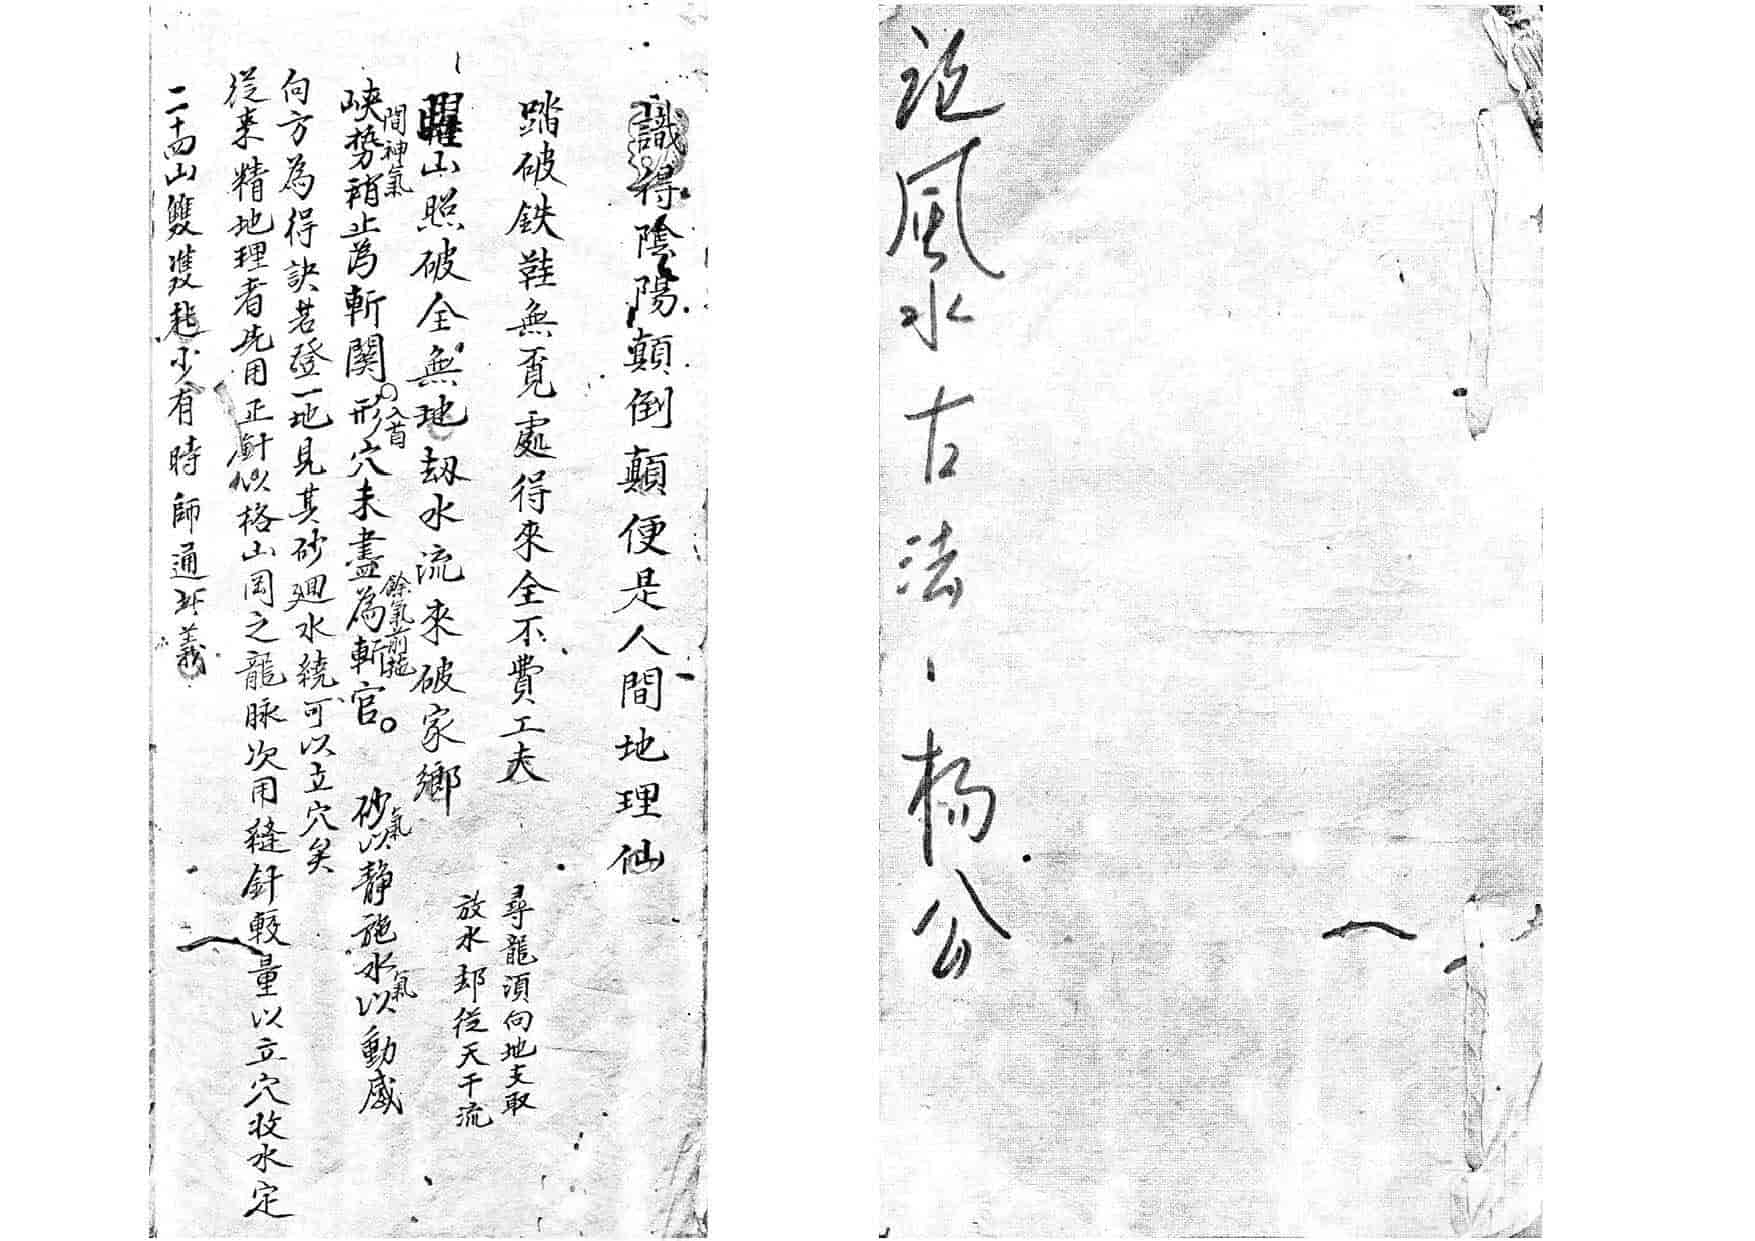 論風水古法、楊公
識得陰陽顛倒顛便是人間地理仙
踏破鉄鞋無覓處得來全不費工夫
尋龍須向地支取
放水却從天干流
曜山照破全無地刼水流來破家鄉
間神氣
峽勢稍止為斬関。形穴未盡為斬官。
入首
餘氣前拖
砂以静施水以動感
氣
氣
向方為得訣若登一地見其砂廻水繞可以立穴矣
従来精地理者先用正針以格山岡之龍脉次用縫針較量以立穴收水定
二十四山雙雙起少有時師通此義